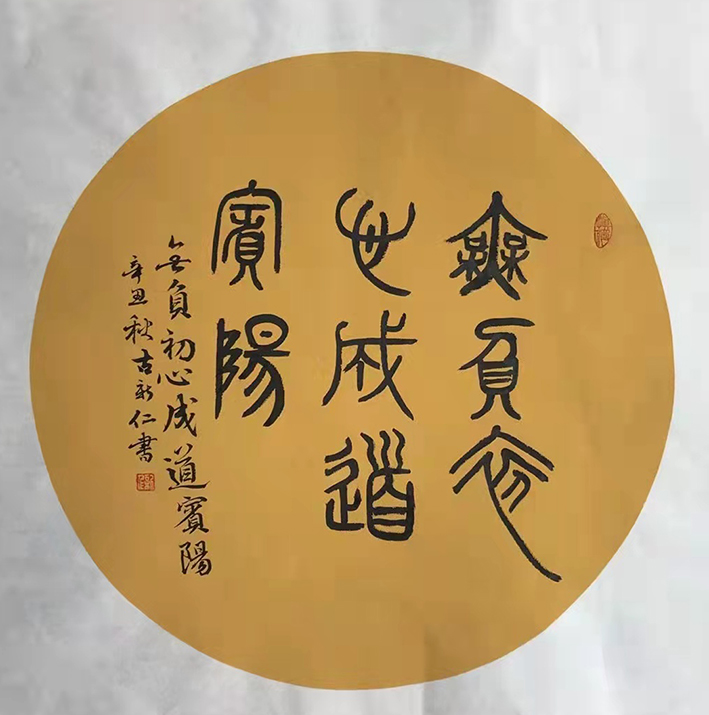 無負初
心成道
賓陽
無負初心成道賓陽
辛丑秋古新仁書